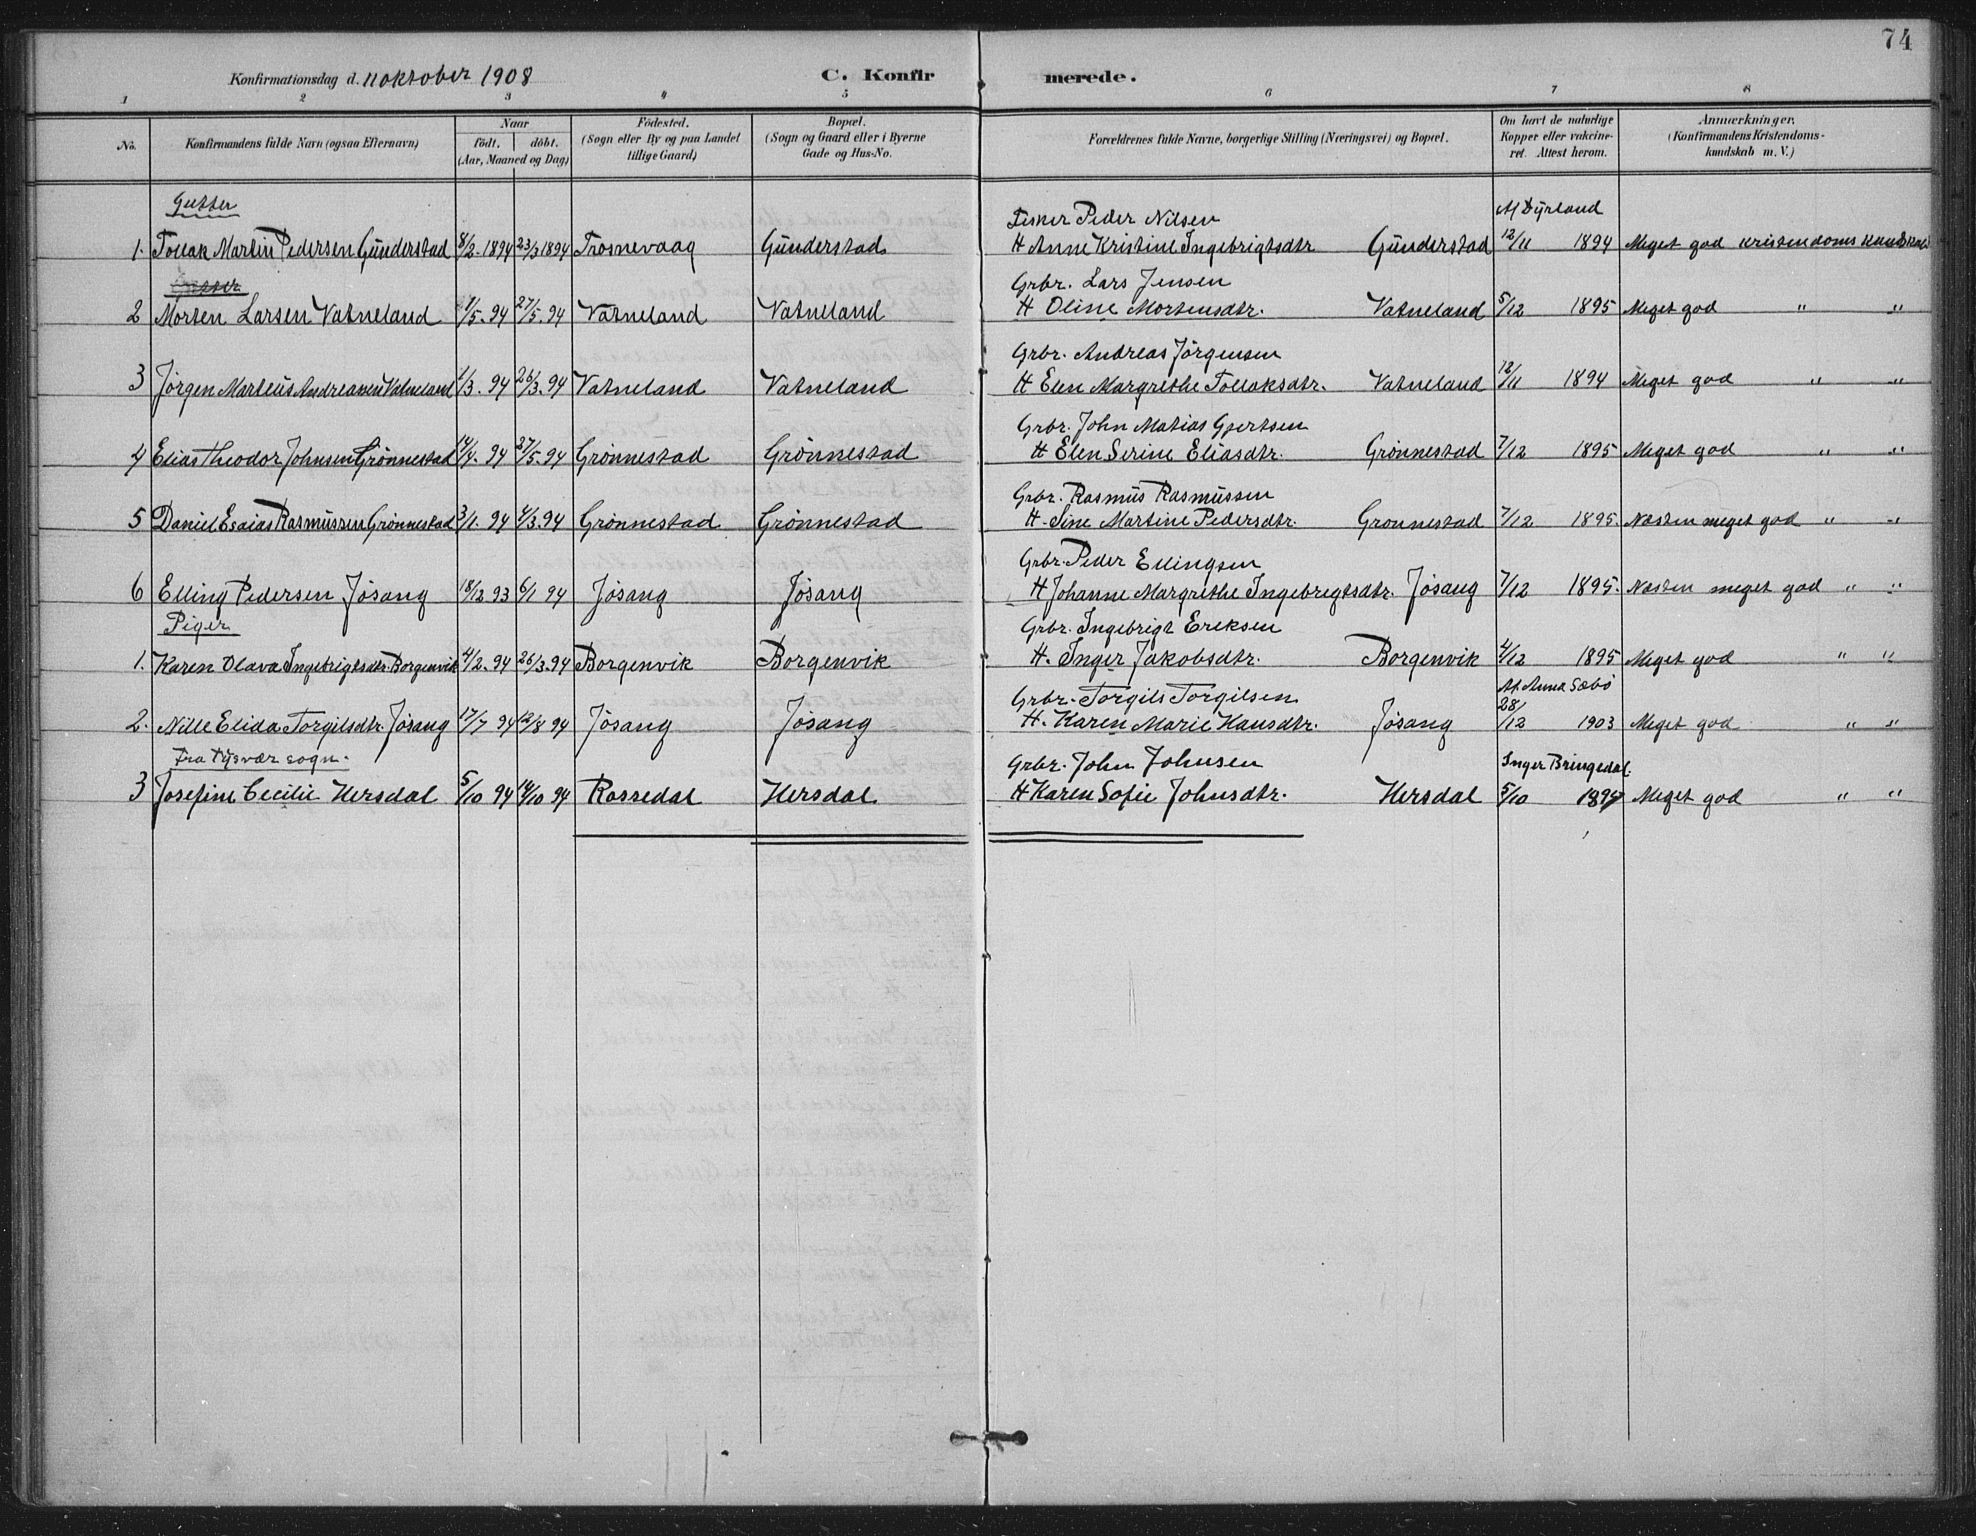 74
Konfirmationsdag d. 11 oktober 1908 C. Konfirmerede.
1 2 3 4 5 6 7 8
No. Konfirmandens fulde Navn (ogsaa Efternavn) Naar födt. döbt. (Aar, Maaned og Dag) Födested. (Sogn eller By og paa Landet tillige Gaard) Bopæl. (Sogn og Gaard eller i Byerne Gade og Hus-No. Forældrenes fulde Navne, borgerlige Stilling (Næringsvei) og Bopæl. Om havt de naturlige Kopper eller vakcineret. Attest herom. Anmærkninger. (Konfirmandens Kristendomskundskab m. V.)
Gutter
Fisker Peder Nilsen M Dyrland
1. Tollak Martin Pedersen Gunderstad 8/2. 1894 23/3 1894 Trosnevaag Gunderstad H Anne Kristine Ingebrigtsdtr Gunderstad 12/11 1894 Meget god Kristendoms kundskab
Gutter Grbr. Lars Jensen
2 Morten Larsen Vatneland 1/5. 94 27/5. 94 Vatneland Vatneland H Oline Mortensdtr. Vatneland 5/12 1895 Meget god " "
Grbr. Andreas Jörgensen
3 Jörgen Martius Andreasen Vatneland 1/3. 94 26/3. 94 Vatneland Vatneland H Elen Margrethe Tollaksdtr. Vatneland 12/11 1894 Meget god " "
Grbr. John Matias Gjertsen
4 Elias Theodor Johnsen Grönnestad 14/4. 94 27/5. 94 Grönnestad Grönnestad H Elen Serine Eliasdtr. Grönnestad 7/12 1895 Meget god " "
Grbr. Rasmus Rasmussen
5 Daniel Esaias Rasmussen Grönnestad 3/1. 94 4/3. 94 Grönnestad Grönnestad H. Sine Martine Pedersdtr. Gronnestad 7/12 1895. Næsten meget god " "
Grbr. Peder Ellingsen
6 Elling Pedersen Jösang 18/12 93 6/1 94 Jösang Jösang H Johanne Margrethe Ingebregtsdtr. Jösang 7/12 1895. Næsten meget god " "
Piger Grbr. Ingebrigt Eriksen
1. Karen Olava Ingebrigtsdtr. Borgenvik 4/2. 94 26/3. 94 Borgenvik Borgenvik H. Inger Jakobsdtr. Borgenvik 4/12 1895 Meget god " "
Grbr. Torgils Torgilsen At. Anna Sæbö
2. Nille Elida Torgilsdtr. Jösang 17/7 94 12/8 94 Jösang Jösang H. Karen Marie Hansdtr. Jösang 28/12 1903 Meget god " "
Fra Tysvær sogn. Grbr. John Johnsen Inger Bringedal
3 Josefine Cecilie Hersdal 5/10 94 14/10 94 Rossedal Hersdal H Karen Sofie Johnsdtr. Hersdal 5/10 1897 Meget god " "